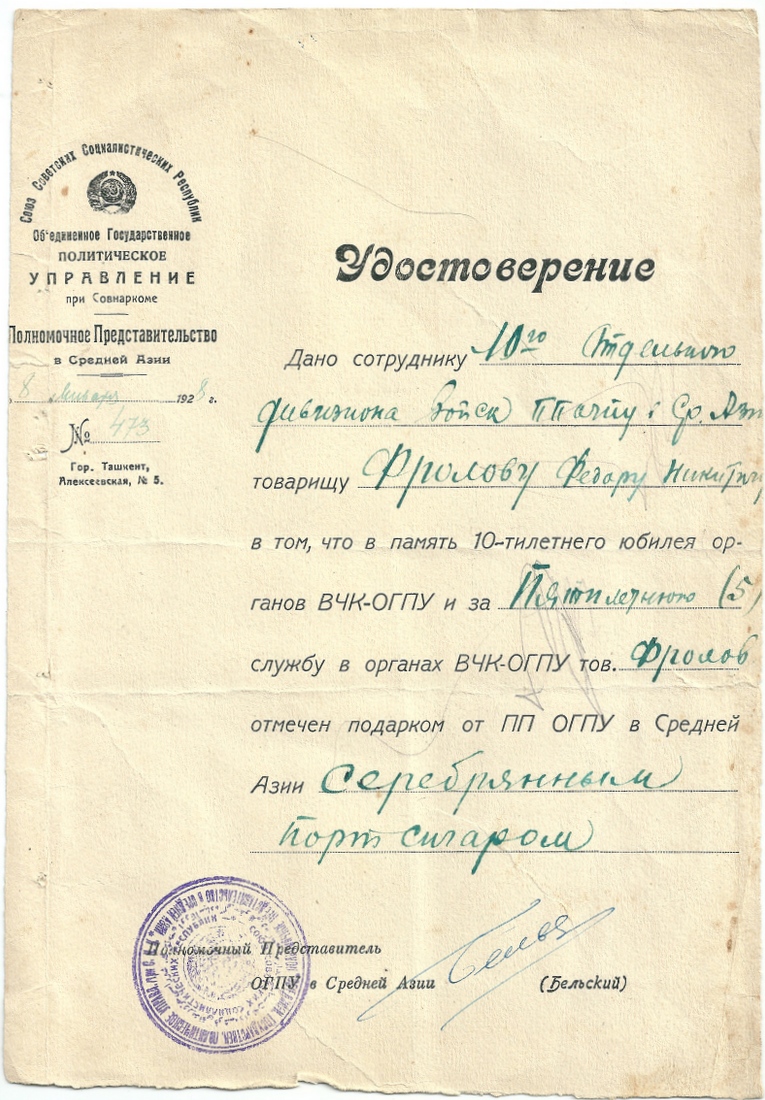 Союз Советских Социалистических Республик
Об'единенное Государственное
ПОЛИТИЧЕСКОЕ
УПРАВЛЕНИЕ
при Совнаркоме
Полномочное Представительство
в Средней Азии
8 января 1928 г.
№ 473
Гор. Ташкент,
Алексеевская, № 5.
Удостоверение
Дано сотруднику 10го Отдельного
дивизиона Войск ПП ОГПУ в Ср. Ази
товарищу Фролову Федору Никитичу
в том, что в память 10-тилетнего юбилея ор-
ганов ВЧК-ОГПУ и за Пятилетнюю (5)
службу в органах ВЧК-ОГПУ тов. Фролов
отмечен подарком от ПП ОГПУ в Средней
Азии Серебрянным
Портсигаром
Полномочный Представитель
ОГПУ в Средней Азии
(Бельский)